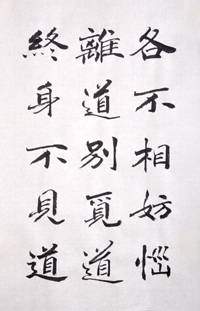 各不相妨惱
離道別覓道
終身不見道